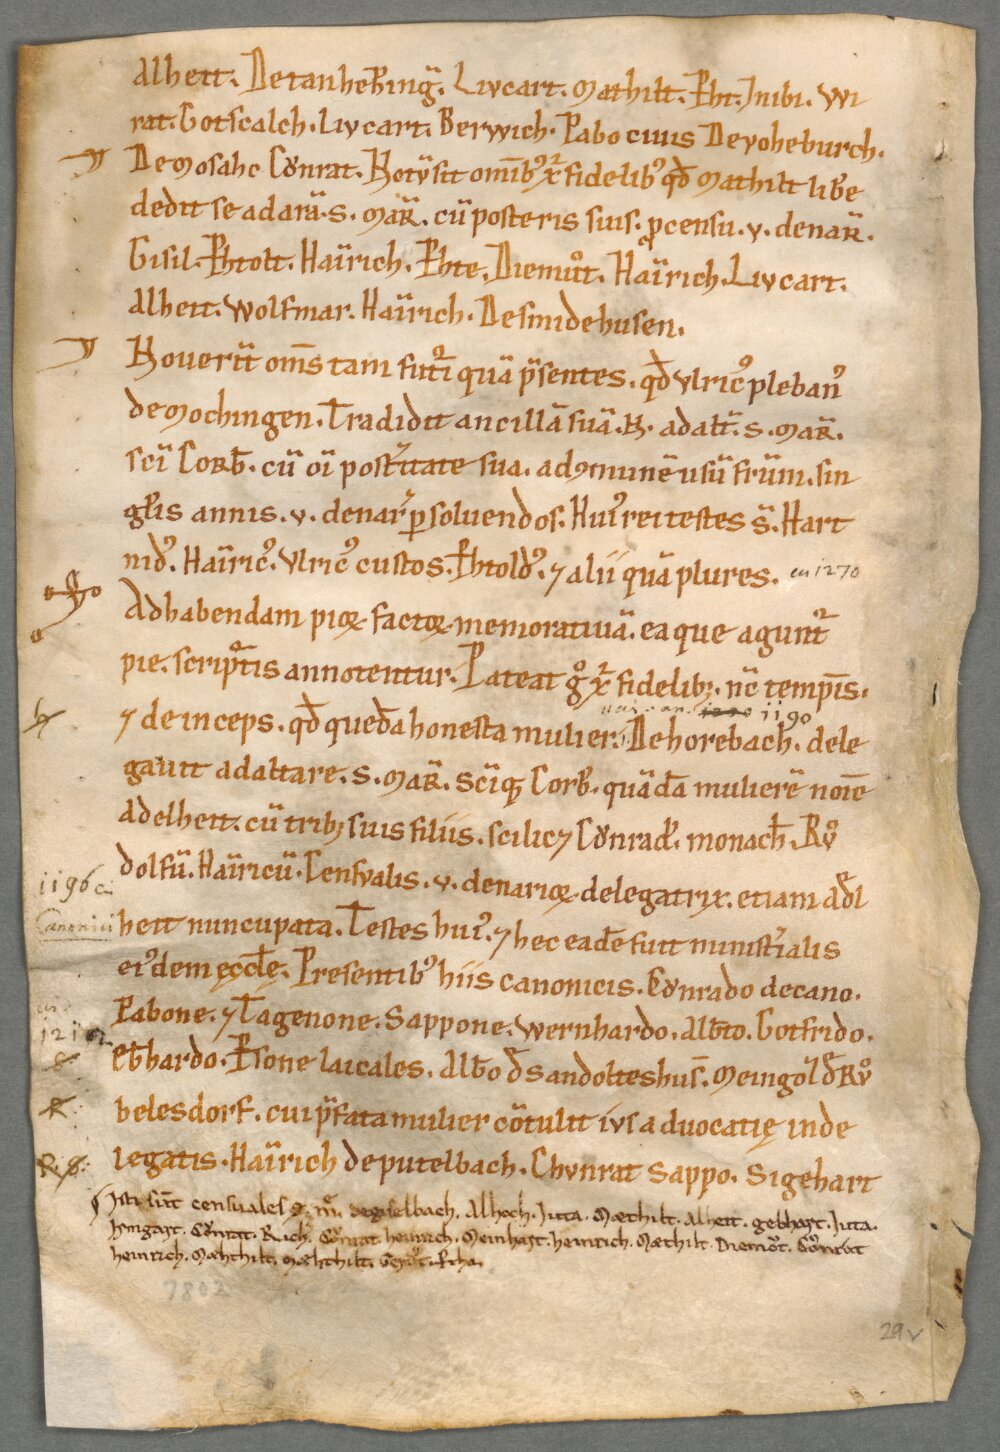 Alheit. Detanhering̈. Livcart. Mathilt. P̄ht. Inibi. Wi
rat. Gotscalch. Livcart. Berwich. Pabo civis Devoheburch.
De Mosahc Cŏnrat. Notv̄ sit om̄ib9 xp̄ fidelib9 qđ Mathilt lib̄e
dedit se ad arā. S. MaR̄. cū posteris suis. p censu. v. denaR̄.
Gisil. P̄htolt. Hainrich. P̄hte. Diemůt. Hainrich. Livcart.
Alheit. Wolfmar. Hainrich. De smidehusen.
Noverit om̄s tam futuri quā p̄sentes. qđ Vlric9 pleban9
de Mochingen. Tradidit ancillā suā. N. ad alt̄. S. MaR̄.
sc̄i CorƁ. cū oī post̄itate sua. ad 9munē usū fr̄um. sin
gl̄is annis. v. denar̄ psoluendos. Hui9 rei testes s̄. Hart
nid9. Hainric9. Vlric9 custos. P̄htold9. ⁊ alii quā plures. 1270
Ad habendam pioꝝ factoꝝ memorativā. ea que agunt̄
pie. scriptis annotentur. Pateat g̊ xp̄ fidelibꝫ. nc̄ temp̄is.
1190
⁊ deinceps. qđ quedā honesta mulier. De horebach. dele
gavit ad altare. S. MaR̄. Sc̄iqꝫ Corb̄. quādā mulierē noīe
Adelheit. cū tribꝫ suis filiis. scilicꝫ Cŏnrad̄. monach̄. Rů
dolfū. Hainricū. Censualis. v. denarioꝝ delegatrix. etiam Adl
1196
heit nuncupata. Testes hui9. ⁊ hec eadē fuit minist̄ialis
Canonici
ei9dem ęccl̄ę. Presentib9 hiis canonicis. Cŏnrado decano.
Pabone. ⁊ Tagenone. Sappone. Wernhardo. Alb̄to. Gotfrido.
Eb̄hardo. P̄sone laicales. Alb̄o đ Sandolteshus̄. Meingoz̄ đ Rů
belesdorf. cui p̄fata mulier cōtulit ivs advocatię in de
legatis. Hainrich de putelbach. Chvnrat Sappo. Sigehart
Isti sūt censuales S. M̄. Alhoch. Jutta. Mæthilt. Alheit. gebhart. Jutta.
Irmgart. Cŏnrat. Rich̄. Cŏnrat. heinrich. Meinhart. heinrich. Mæthilt. Diemŏt. Cŏnrat
heinrich. Mæhthilt. Mæhthilt.
7802
29v